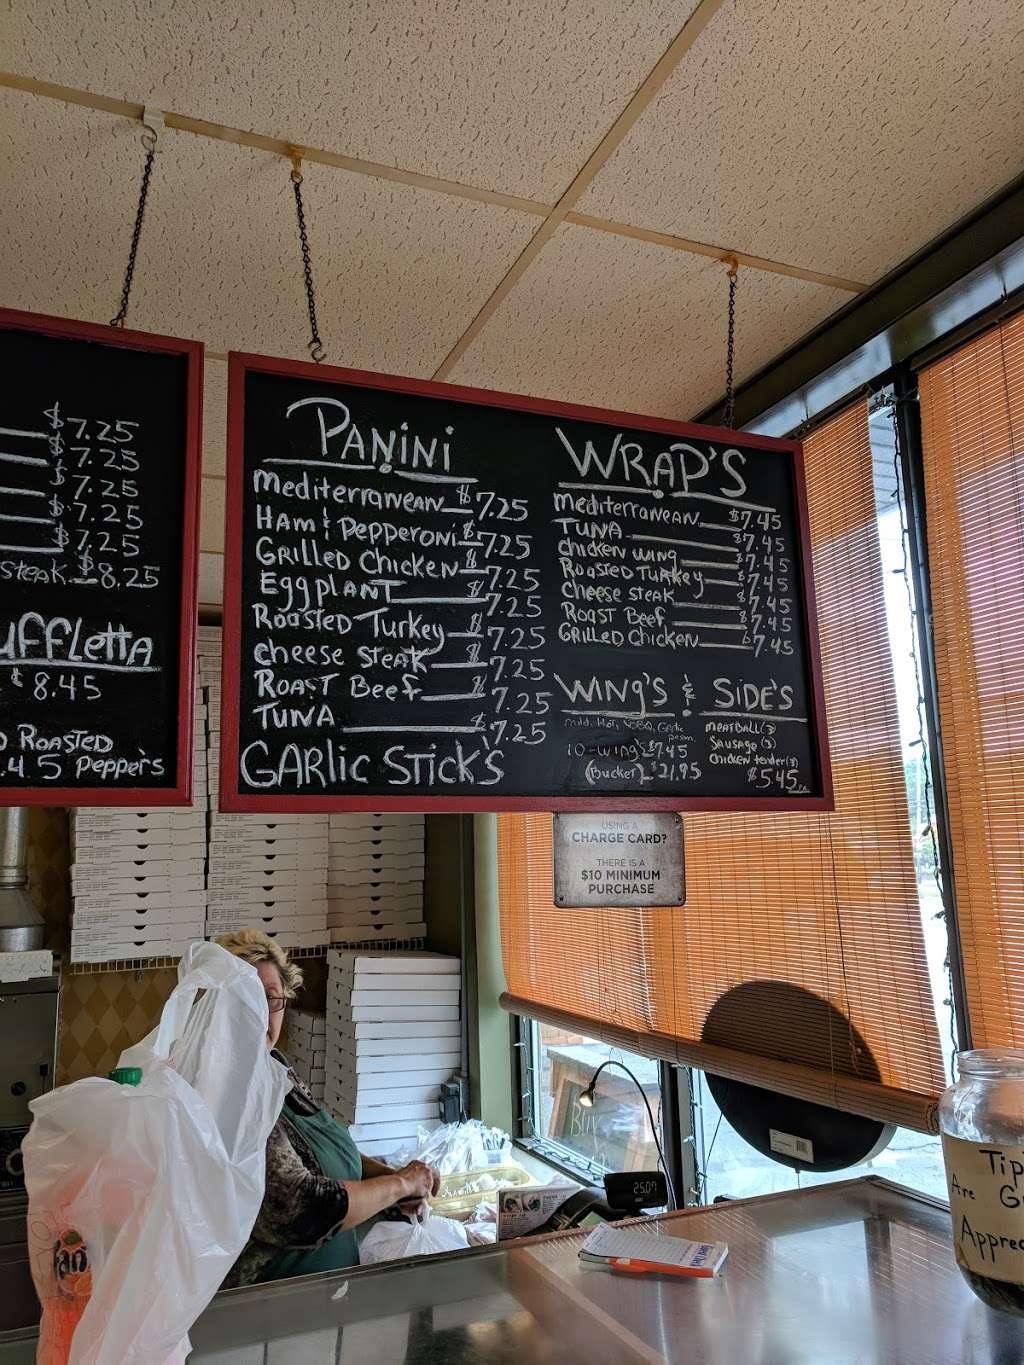 $7.25
$7.25
$7.25
$7.25
$7.25
steak $8.25
uffletta
$8.45
Roasted
.45 Pepper's
Panini
Mediterranean $7.25
Ham & Pepperoni $7.25
Grilled Chicken $7.25
Eggplant $7.25
Roasted Turkey $7.25
Cheese Steak $7.25
Roast Beef $7.25
Tuna $7.25
Garlic Stick's
Wrap's
Mediterranean $7.45
Tuna $7.45
Chicken Wing $7.45
Roasted Turkey $7.45
Cheese Steak $7.45
Roast Beef $7.45
Grilled Chicken $7.45
Wing's & Side's
Mild, Hot, BBQ, Garlic
10-Wing's $7.45
(Bucket) $21.95
Meatball (3)
Sausage (3)
Chicken tender (3)
$5.45 ea.
USING A
CHARGE CARD?
THERE IS A
$10 MINIMUM
PURCHASE
BUY
25.07
Tip
Are G
Apprec